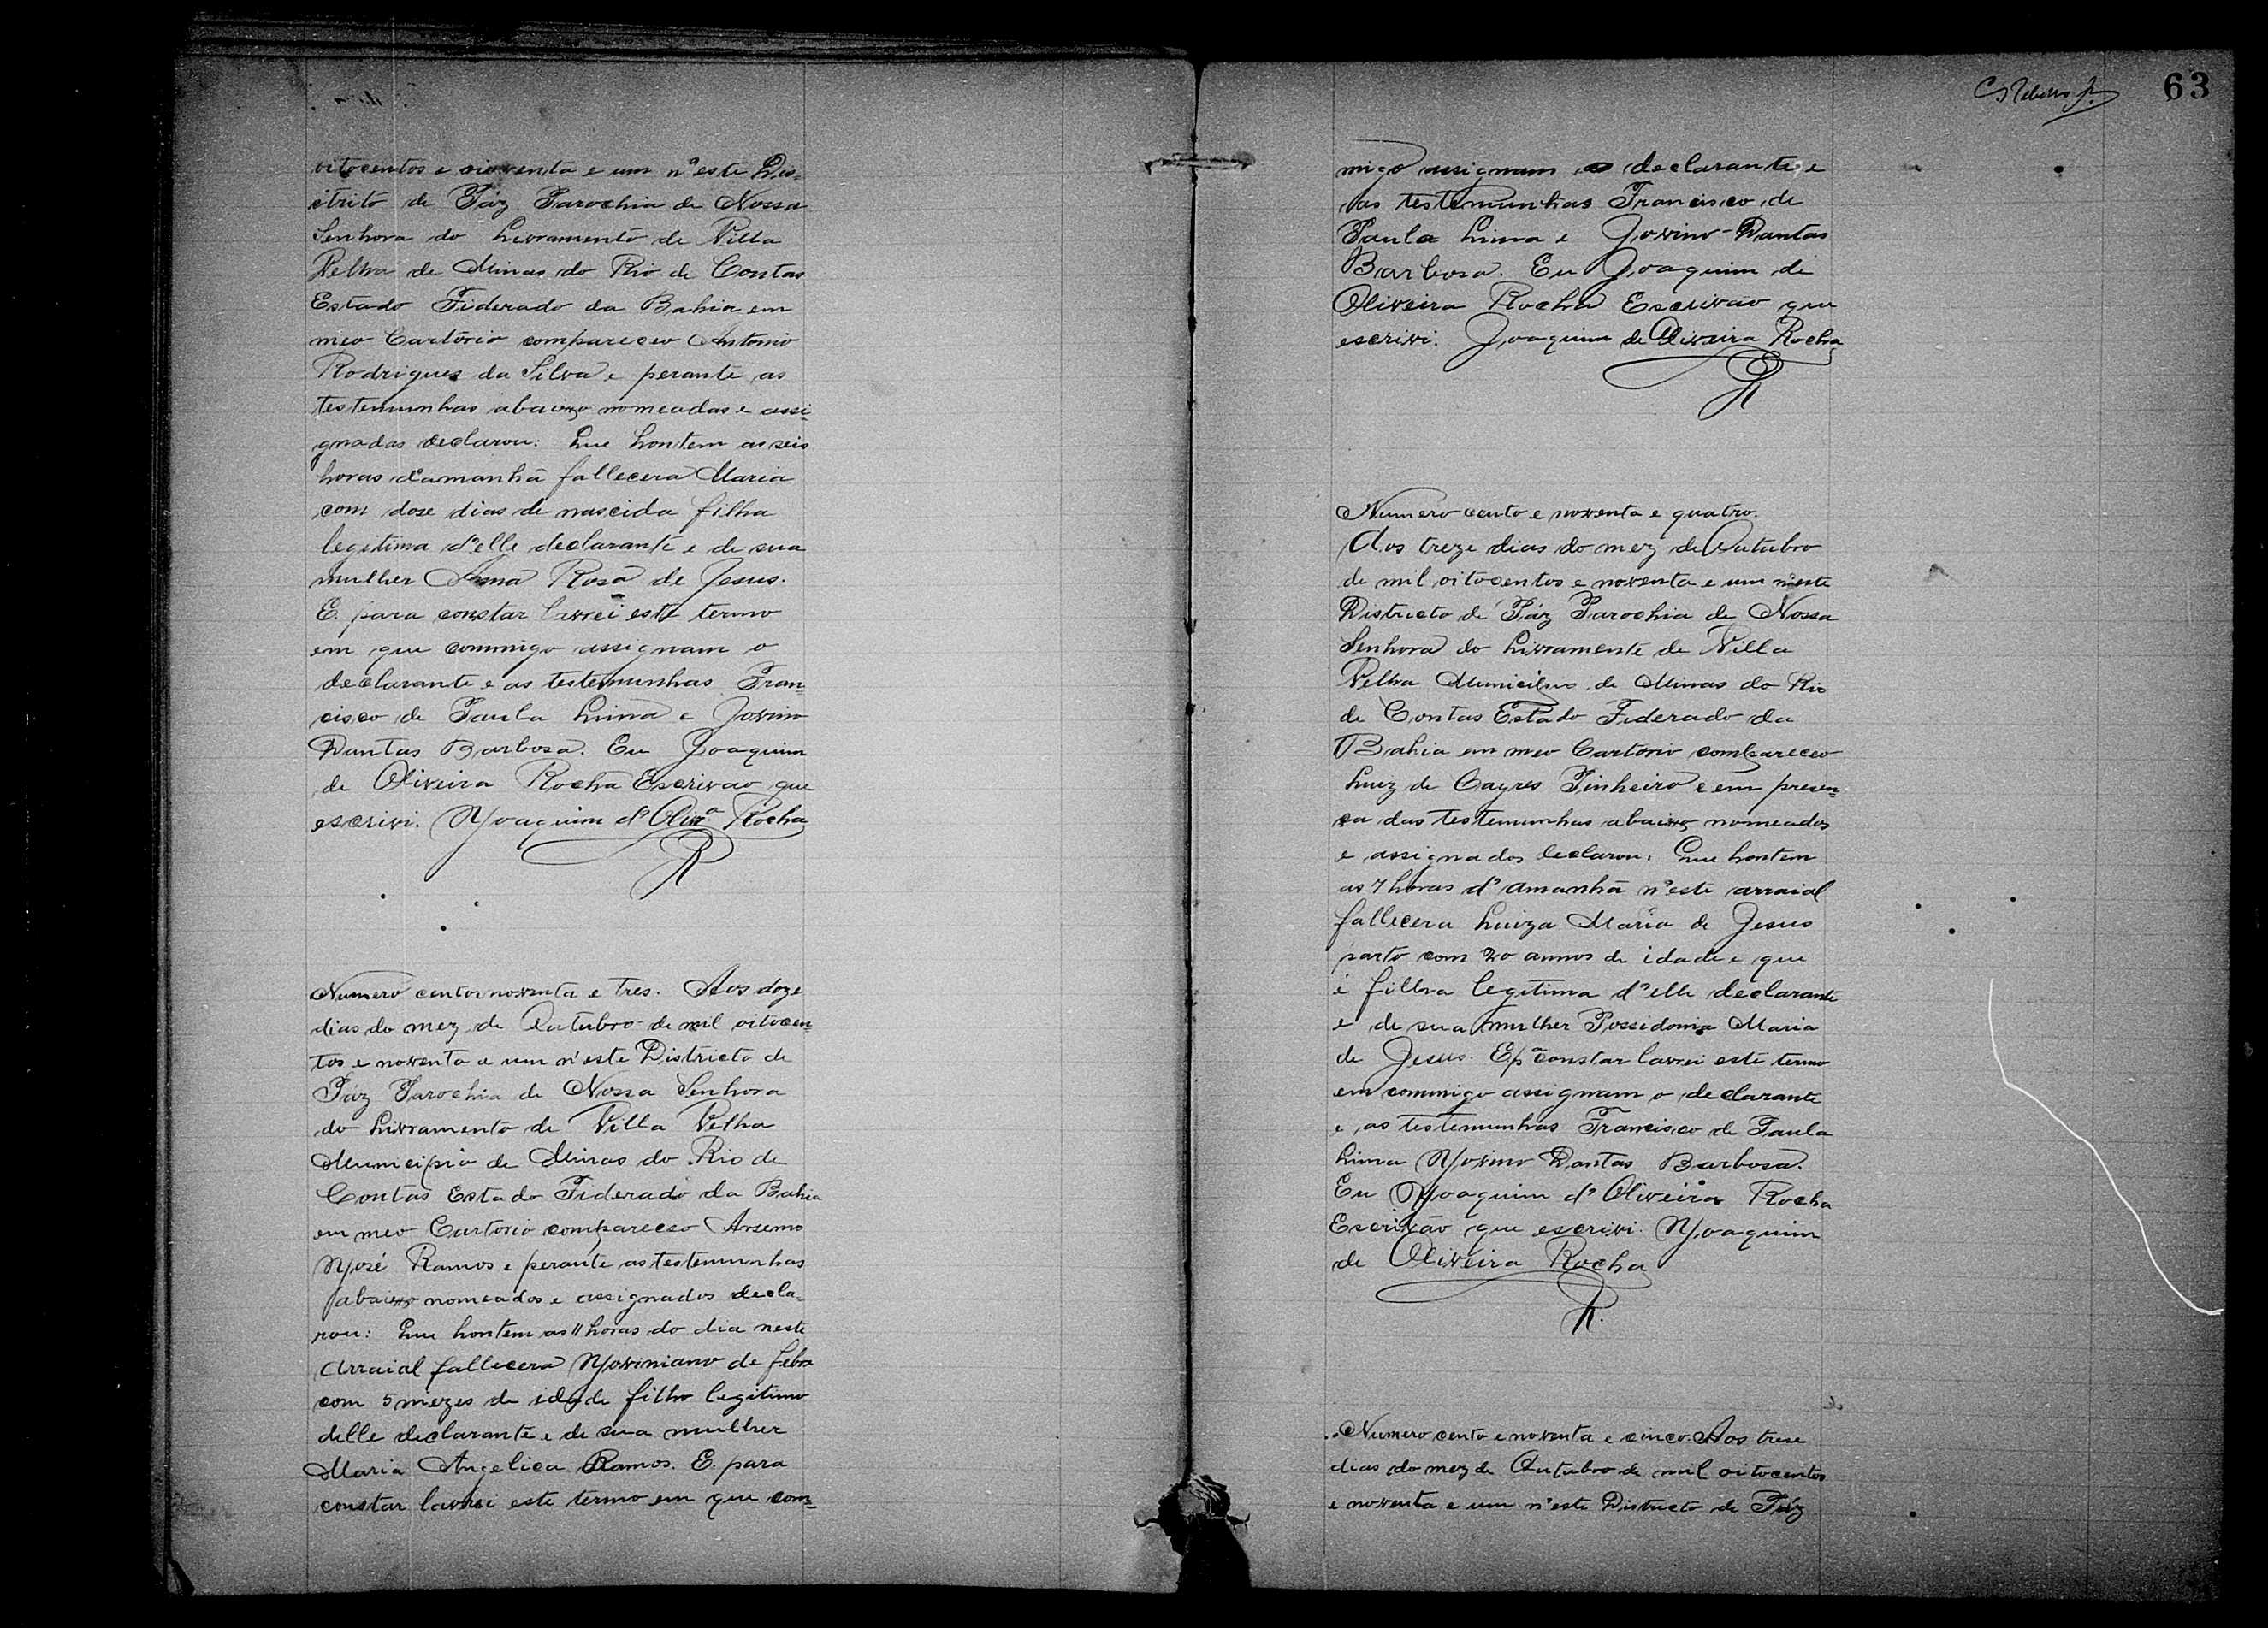 oitocentos e noventa e um n'este Dis-
itrito de Páz Parochia de Nossa
Senhora do Livramento de Villa
Velha de Minas do Rio de Contas
Estado Fiderado da Bahia em
meo Cartorio compareceo Antonio
Rodrigues da Silva e perante as
testemunhas abaixo nomeadas e assi-
gnadas declarou: Que hontem as seis
horas d'amanhã fallecera Maria
com dose dias de nascida filha
legitima d'elle declarante e de sua
mulher Anna Rosa de Jesus.
E para constar lavrei este termo
em que commigo assignam o
declarante e as testemunhas Fran-
cisco de Paula Lima e Jovino
Dantas Barbosa. Eu Joaquim
de Oliveira Rocha Escrivão que
escrivi. Joaquim d' Olivrª Rocha
R
Numero cento noventa e tres. Aos doze
dias do mez de Outubro de mil oitocen-
tos e noventa e um n'este Districto de
Páz Parochia de Nossa Senhora
do Livramento de Villa Velha
Municipio de Minas do Rio de
Contas Estado Fiderado da Bahia
em meo Cartorio compareceo Anselmo
José Ramos e perante as testemunhas
abaixo nomeados e assignados decla-
rou: Que hontem as 11 horas do dia neste
arraial fallecera Joviniano de febre
com 5 mezes de idade filho legitimo
delle declarante e de sua mulher
Maria Angelica Ramos. E para
constar lavrei este termo em que com-
63
migo assignam o declarante e
as testemunhas Francisco de
Paula Lima e Jovino Dantas
Barbosa. Eu Joaquim de
Oliveira Rocha Escrivão que
escrivi. Joaquim de Oliveira Rocha
R
Numero cento e noventa e quatro.
Aos treze dias do mez de Outubro
de mil oitocentos e noventa e um n'este
Districto de Páz Parochia de Nossa
Senhora do Livramente de Villa
Velha Municipio de Minas do Rio
de Contas Estado Fiderado da
Bahia em meo Cartorio compareceo
Luiz de Cayres Pinheiro e em presen-
ça das testemunhas abaixo nomeados
e assignados declarou: Que hontem
as 7 horas d'amanhã n'este arraial
fallecera Luiza Maria de Jesus
parto com 20 annos de idade e que
é filha legitima d'elle declarante
e de sua mulher Possidonia Maria
de Jesus. E pª constar lavrei este termo
em commigo assignam o declarante
e as testemunhas Francisco de Paula
Lima Jovino Dantas Barbosa.
Eu Joaquim d' Oliveira Rocha
Escrivão que escrivi. Joaquim
de Oliveira Rocha
R.
Numero cento e noventa e cinco. Aos trese
dias do mez de Outubro de mil oitocentos
e noventa e um n'este Districto de Páz